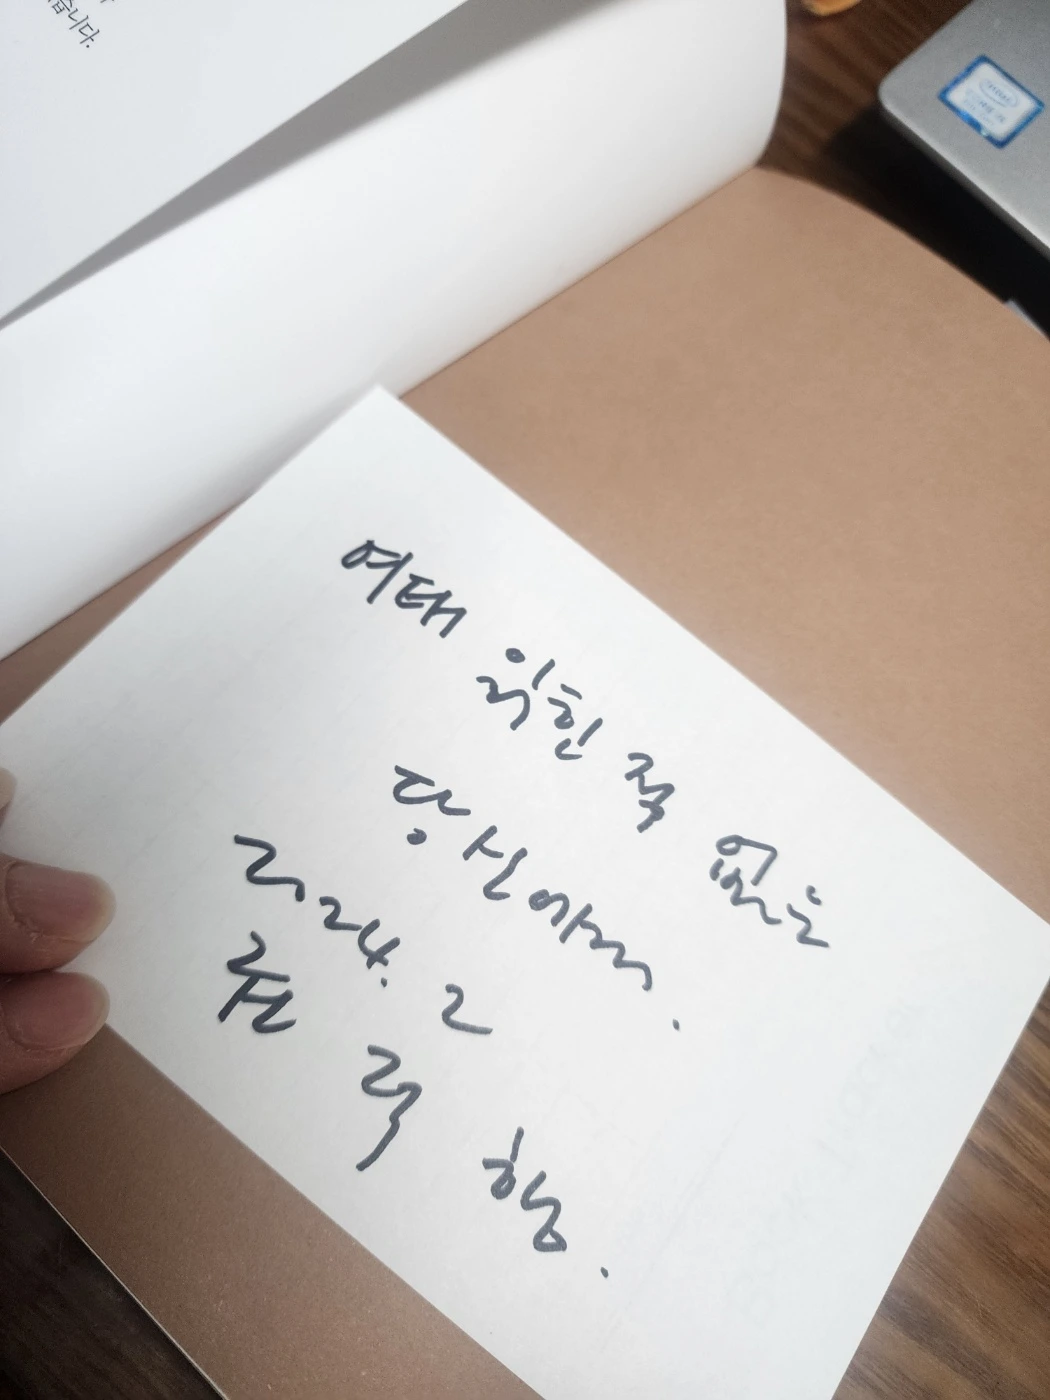 습니다.
여태 읽힌 적 없는
당신에게.
2024. 2
권 덕 행.